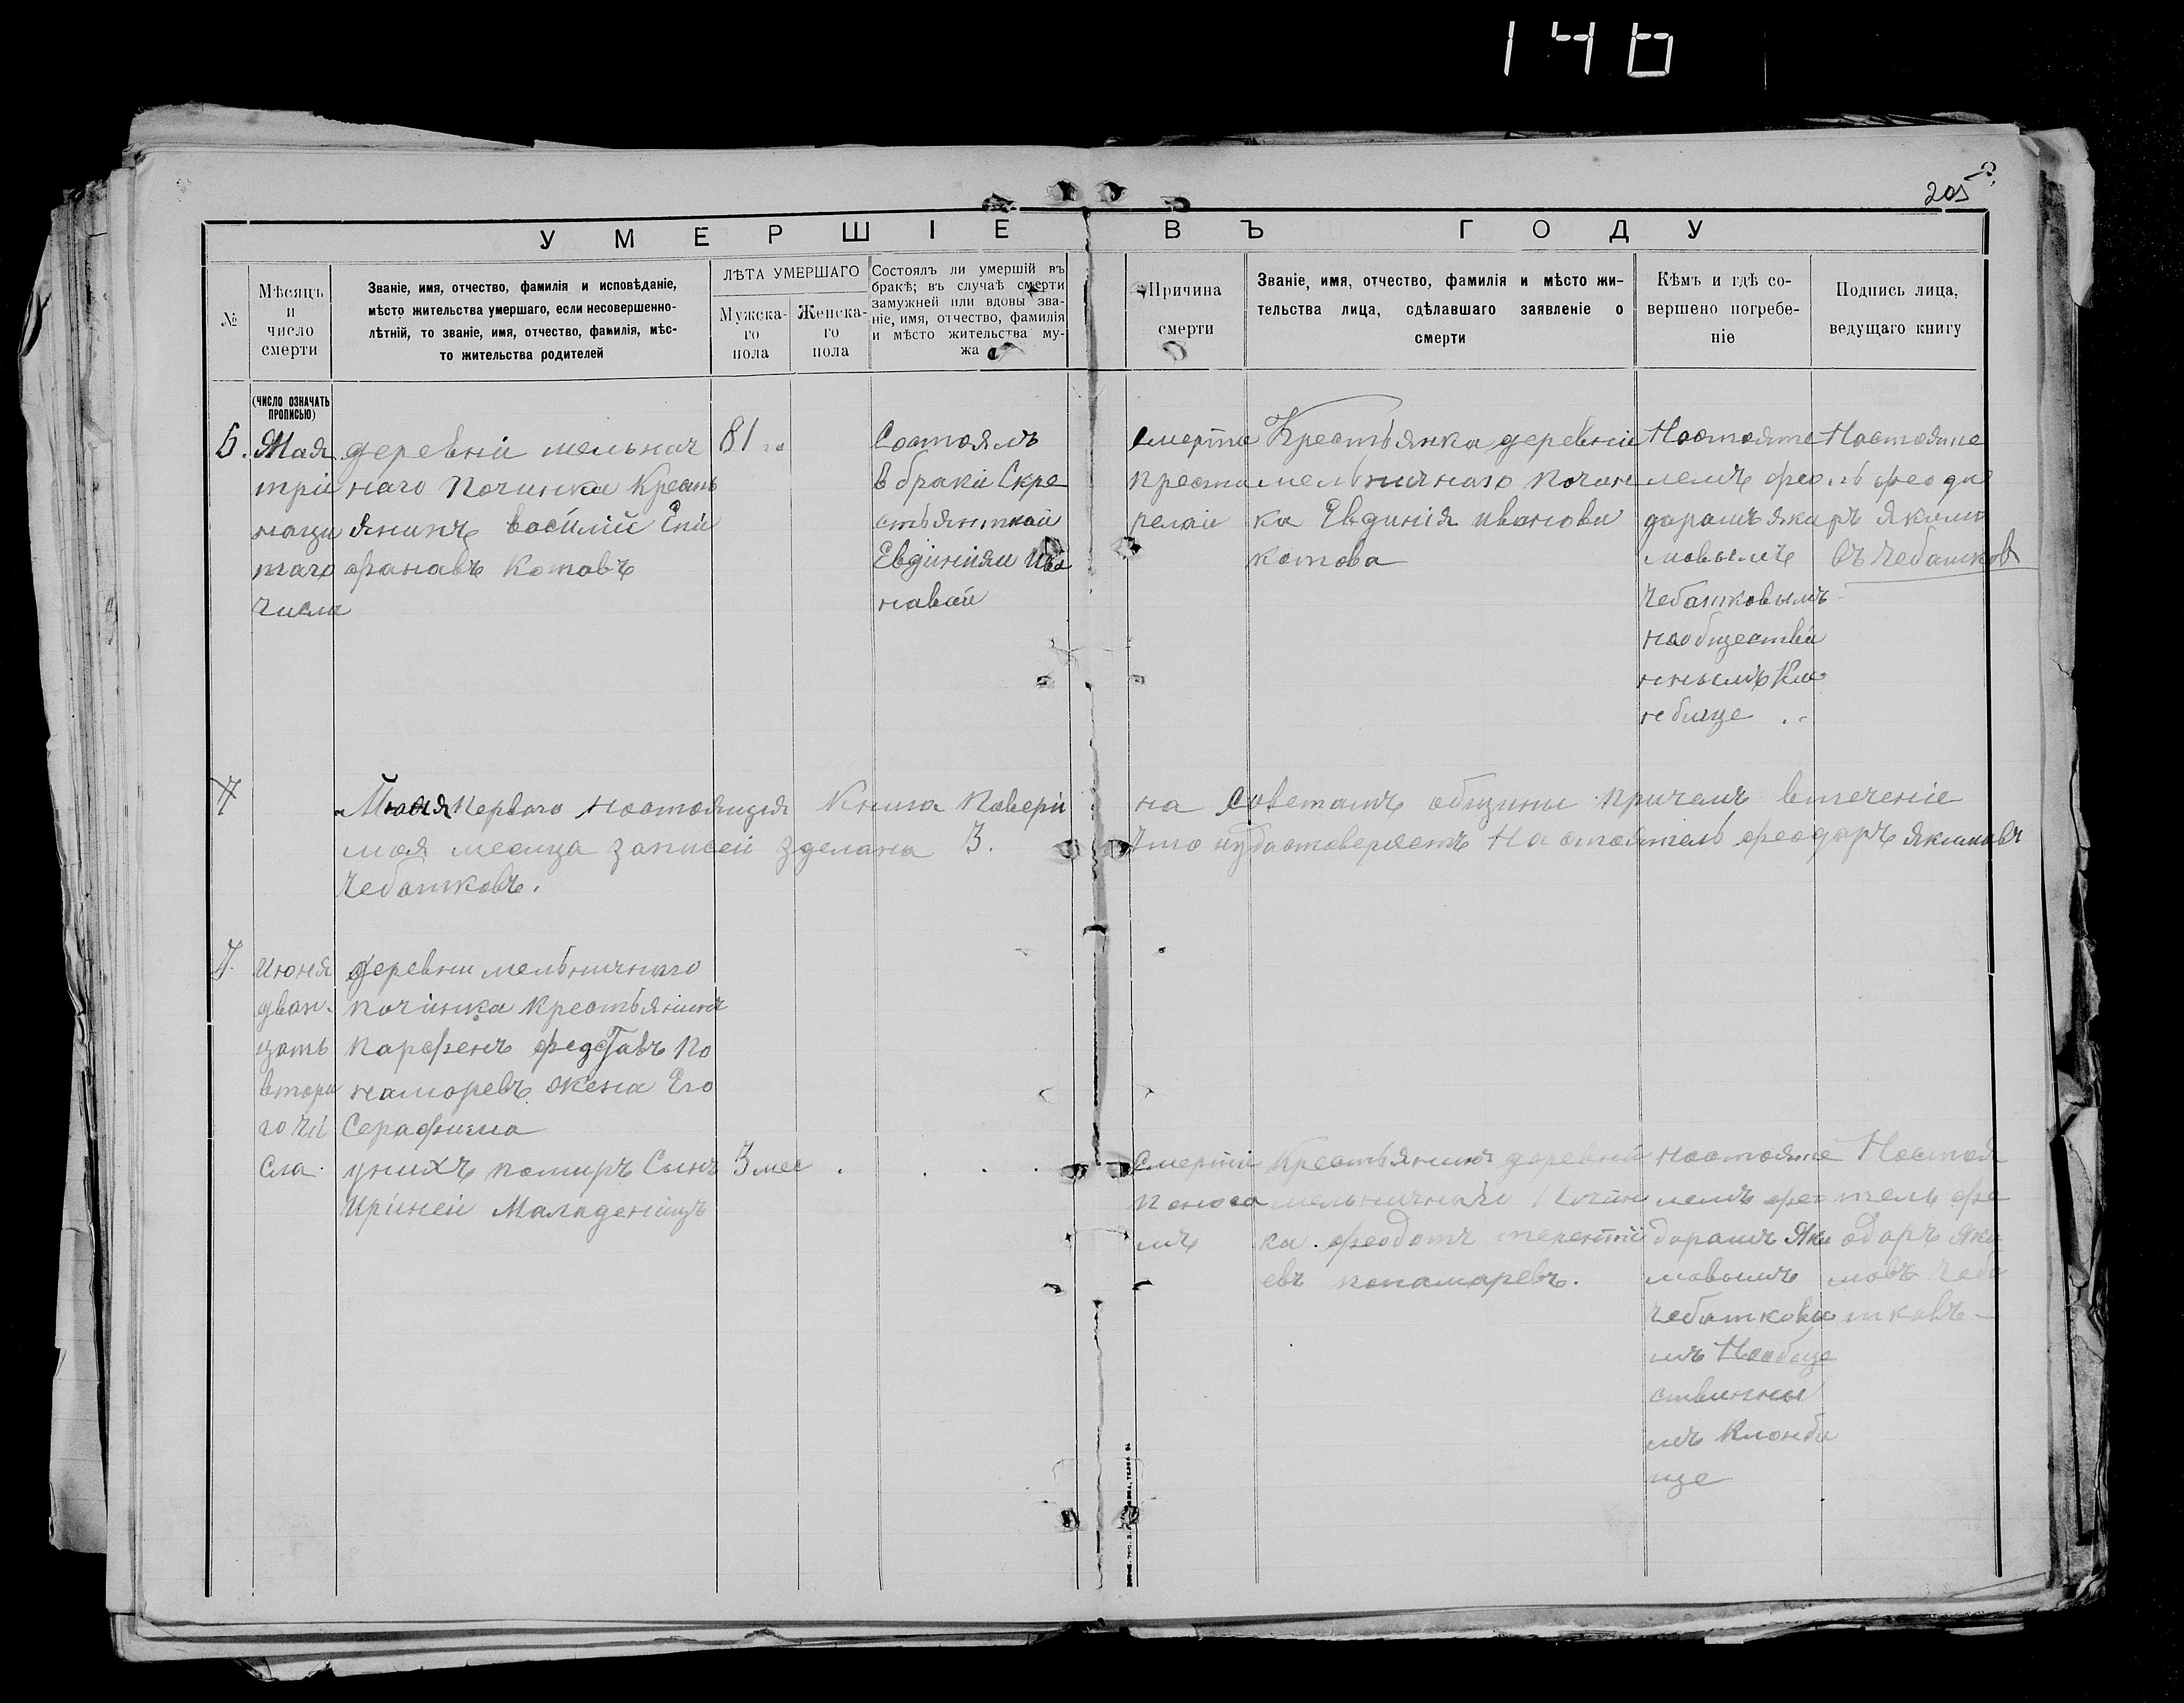 146
205
УМЕРШІЕ ВЪ ГОДУ
№
Мѣсяцъ
и
число
смерти
Званіе, имя, отчество, фамилія и исповѣданіе,
мѣсто жительства умершаго, если несовершенно-
лѣтній, то званіе, имя, отчество, фамилія, мѣс-
то жительства родителей
ЛѢТА УМЕРШАГО
Мужска-
го
пола
Женска-
го
пола
Состоялъ ли умершій въ
бракѣ; въ случаѣ смерти
замужней или вдовы зва-
ніе, имя, отчество, фамилія
и мѣсто жительства му-
жа
Причина
смерти
Званіе, имя, отчество, фамилія и мѣсто жи-
тельства лица, сдѣлавшаго заявленіе о
смерти
Кѣмъ и гдѣ со-
вершено погребе-
ніе
Подпись лица,
ведущаго книгу
(ЧИСЛО ОЗНАЧАТЬ
ПРОПИСЬЮ)
6.
Мая
трі
наци
таго
числа
деревни мельнич
наго Починка Кресть
янинъ Василій Епи
фанавъ Котовъ
81
Состоялъ
в браки Скре
стьянткай
Евдинияи Ива
навай
смерти
преста
релаи
Крестьянка деревни
мельничнаго почин
ка Евдинія иванови
котова
Настояте
лемъ фео
дарамъ яки
мовымъ
Чебатковымъ
наобществи
ннымъ Кла
нбище
Настояте
ль феода
ръ Якимо
въ Чебатковъ
Июня первого настоящия Книга Павери
на Советамъ общины причемъ втечение
мая месяца записеи зделана 3.
Что нудастоверяетъ Настоятель феодаръ якимавъ
Чебатковъ.
7.
Июня
дван-
цать
втора
го чи
сла
деревни мельничнаго
починка Крестьянинъ
парфенъ федотавъ По
намаревъ жена Его
Серафима
унихъ помиръ Сынъ
Ириней Маладеницъ
3 мес
Смерти
Паноса
мъ
Крестьянинъ деревни
мельничнаго Почин
ка феодотъ терентіи
евъ понамаревъ.
настояте
лемъ фео
дарамъ Яки
мавымъ
Чебаткавы
мъ Наобще
ствинны
мъ Клонби
ще
Настоя
тель фе
одаръ Яки
мовъ Чеба
тковъ